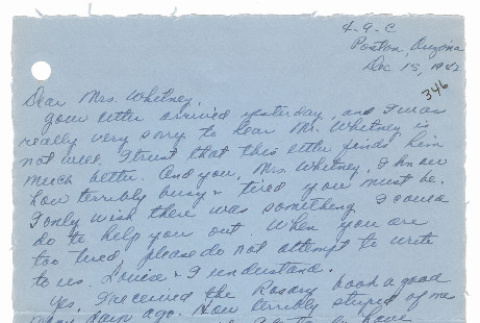 4-9-C
Poston, Arizona
Dec 15, 1942
346
Dear Mrs. Whitney,
Your letter arrived yesterday, and I was
really very sorry to hear Mr. Whitney is
not well. I trust that this letter finds him
much better. And you, Mrs. Whitney, I know
how terribly busy & tired you must be.
I only wish there was something I could
do to help you out. When you are
too tired, please do not attempt to write
to us. Louise & I understand.
Yes, I received the Rosary book a good
many days ago. How terribly stupid of me